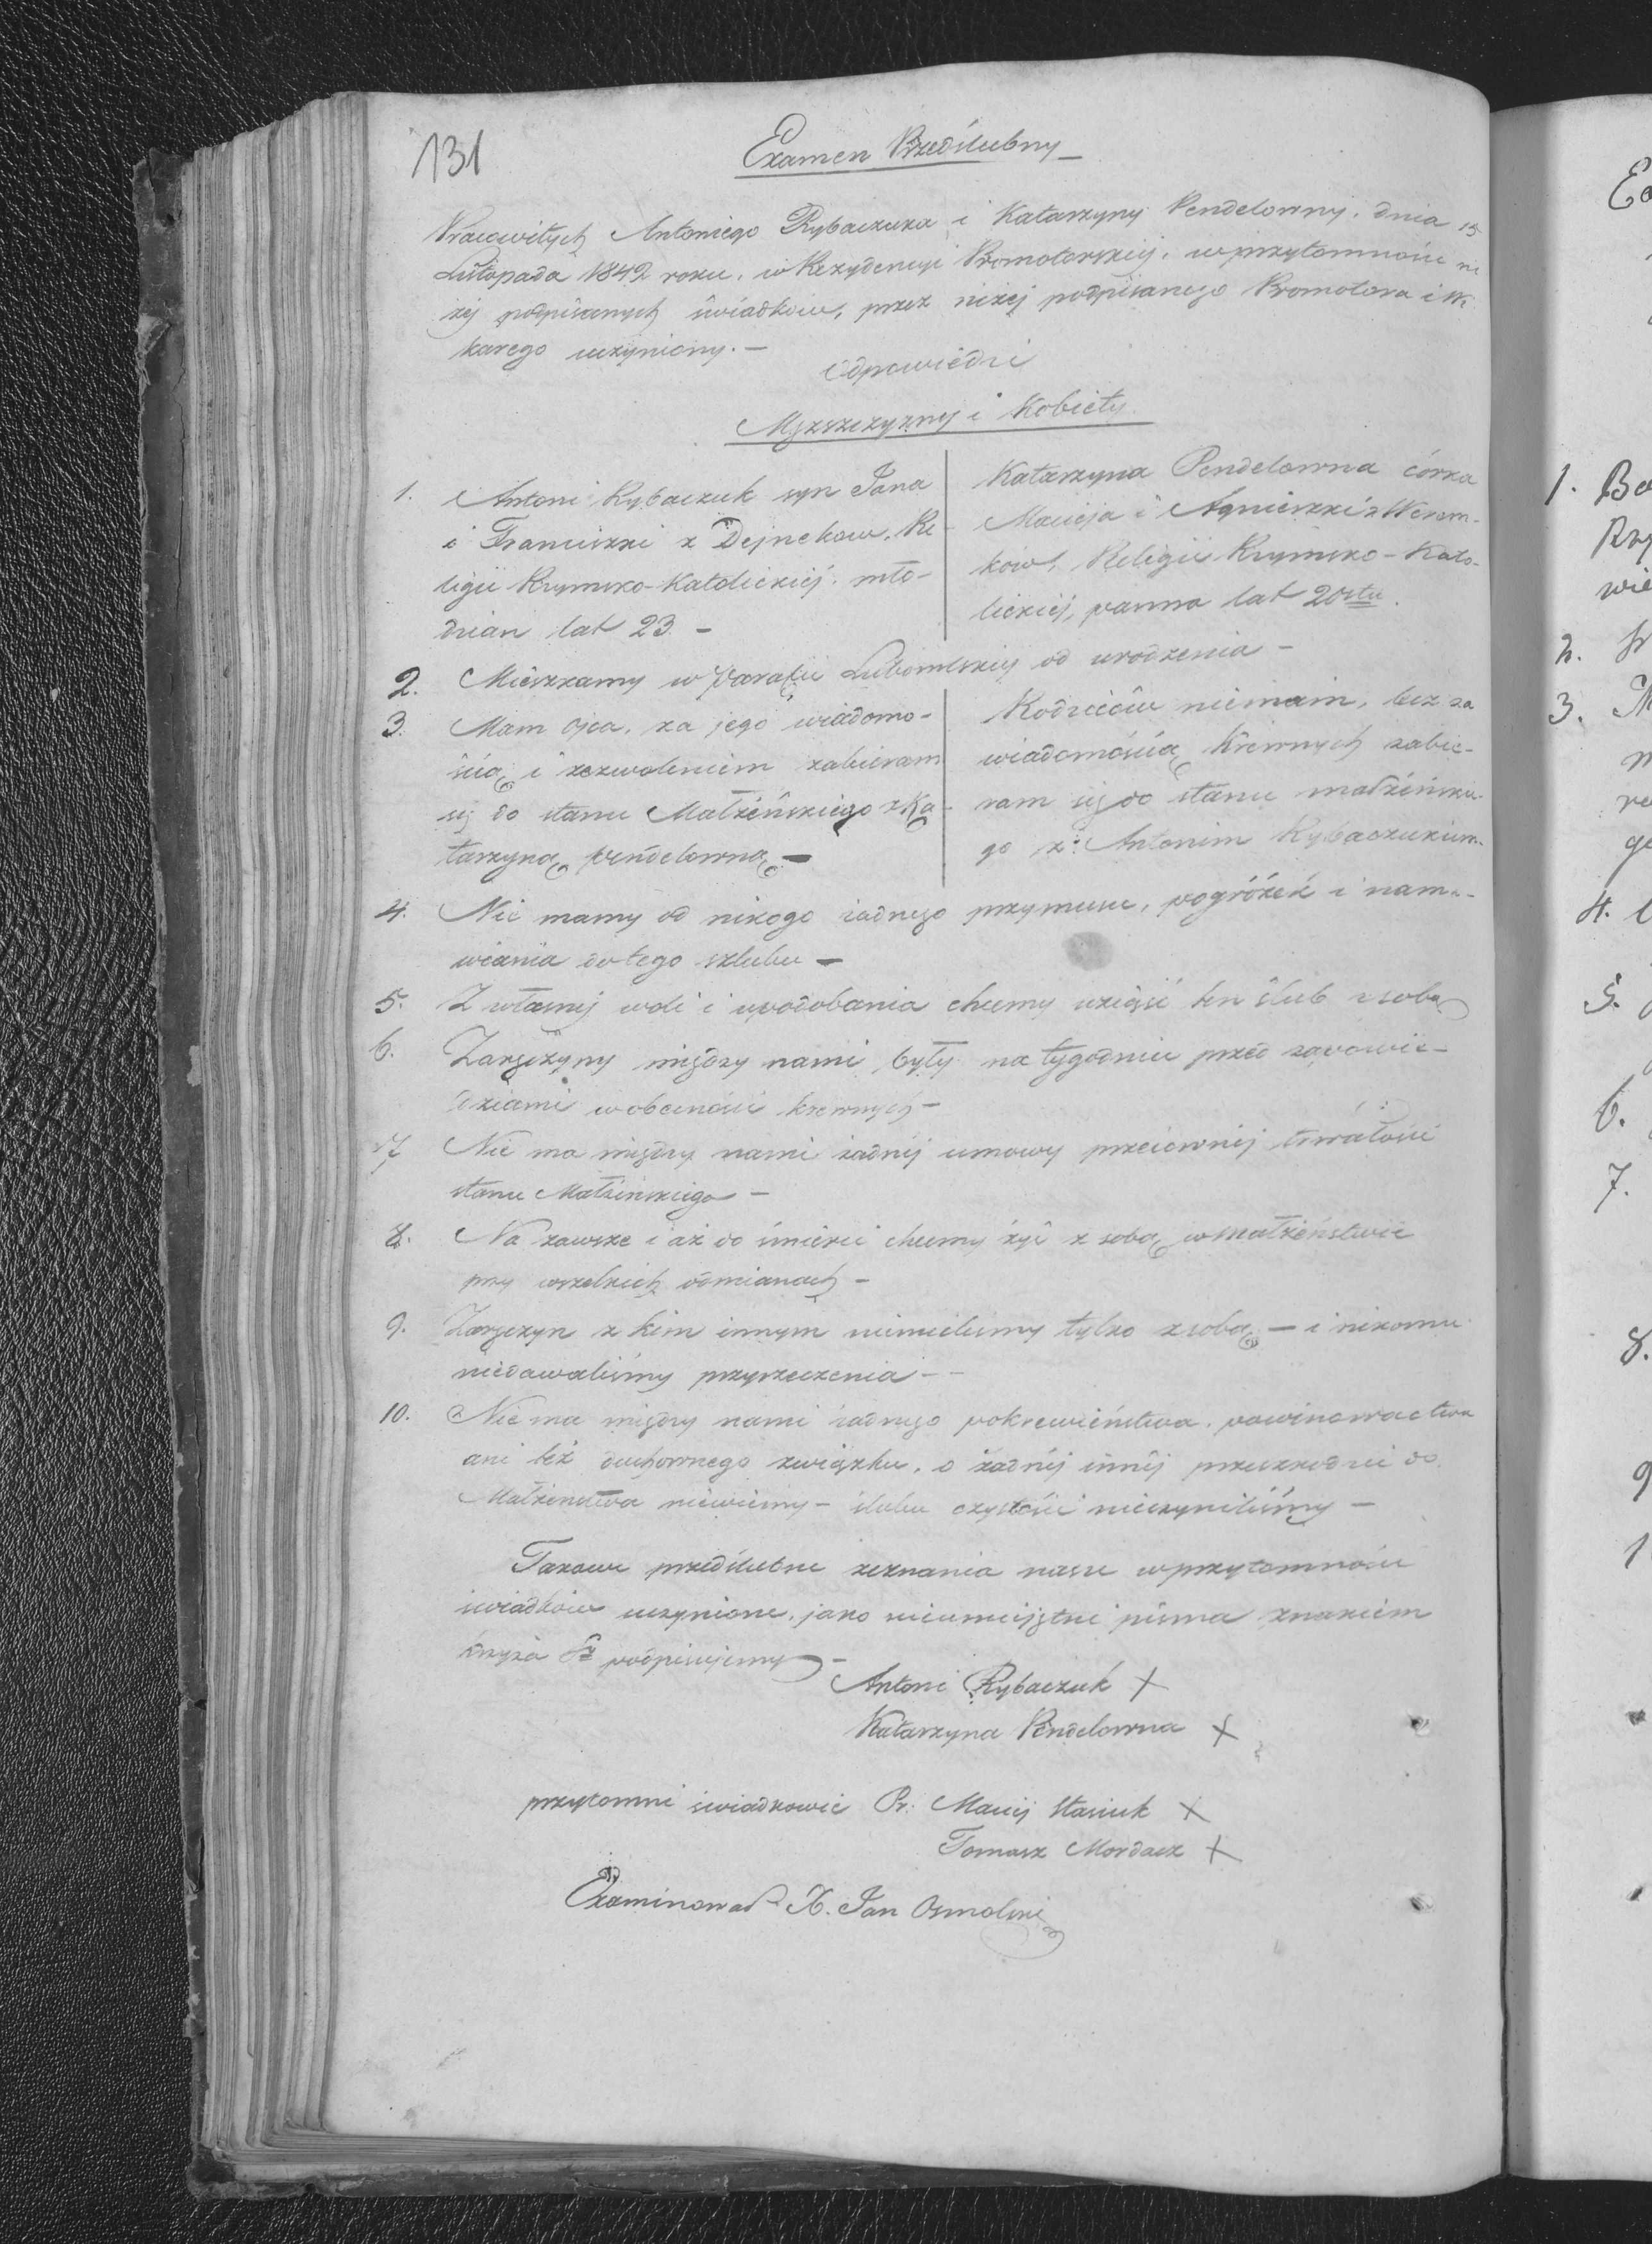 131
Examen Przedślubny
Pracowitych Antoniego Rybaczuka i Katarzyny Pendelowny, dnia 15
Listopada 1842 roku, w Rezydencyi Promotorskiej, w przytomności ni
żej podpisanych świadków, przez niżej podpisanego Promotora i Wi
karego uczyniony. —
Odpowiedzi
Męzszczyzny i Kobiety.
1. Antoni Rybaczuk syn Jana
i Franciszki z Dejneków, Re
ligii Rzymsko-Katolickiej, mło-
dzian lat 23. —
Katarzyna Pendelowna córka
Macieja i Agnieszki z Werem-
ków, Religii Rzymsko-Kato-
lickiej, panna lat 20stu.
2. Mieszkamy w Parafii Lubomlskiej od urodzenia —
3. Mam Ojca, za jego wiadomo-
ścią i zezwoleniem zabieram
się do stanu Małżeńskiego z Ka-
tarzyną Pendelowną —
Rodziców niemam, lecz za
wiadomością krewnych zabie-
ram się do stanu małżeńskie-
go z: Antonim Rybaczukiem.
4. Nie mamy od nikogo żadnego przymusu, pogróżek i nama-
wiania do tego szlubu —
5. Z własnej woli i upodobania chcemy wziąść ten ślub z sobą
6. Zaręczyny między nami były na tygodniu przed zapowie-
dziami w obecności krewnych —
7 Nie ma między nami żadnej umowy przeciwnej trwałości
stanu Małżeńskiego —
8. Na zawsze i aż do śmierci chcemy żyć z sobą w małżeństwie
przy wszelkich odmianach —
9. Zaręczyn z kim innym niemieliśmy tylko z sobą — i nikomu
niedawaliśmy przyrzeczenia —
10. Nie ma między nami żadnego pokrewieństwa, powinowactwa
ani też duchownego związku, o żadnej innej przeszkodzie do
Małżeństwa niewiemy — ślubu czystości nieczyniliśmy —
Takowe przedślubne zeznania nasze w przytomności
świadków uczynione, jako nieumiejętni pisma znakiem
krzyża podpisujemy —
Antoni Rybaczuk X
Katarzyna Pendelowna X
przytomni świadkowie Pr: Maciej Stasiuk X
Tomasz Mordacz X
Examinował X. Jan Osmolski
1. Ba
2.
3.
4.
5.
6.
7.
8.
9
1